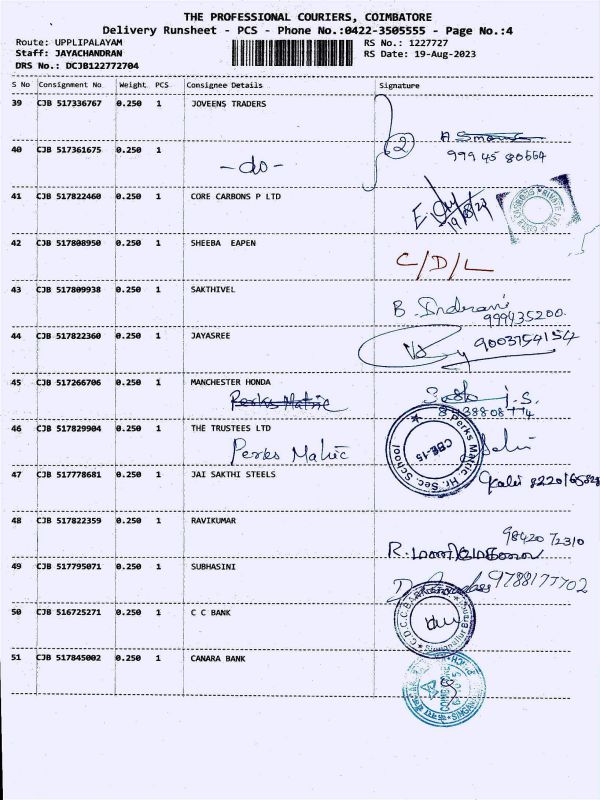 THE PROFESSIONAL COURIERS, COIMBATORE
Delivery Runsheet - PCS - Phone No.:0422-3505555 - Page No.:4
Route: UPPLIPALAYAM
RS No.: 1227727
Staff: JAYACHANDRAN
RS Date: 19-Aug-2023
DRS No.: DCJB122772704
S No Consignment No Weight PCS Consignee Details Signature
39 CJB 517336767 0.250 1 JOVEENS TRADERS
2
40 CJB 517361675 0.250 1
-do-
99945 80664
41 CJB 517822460 0.250 1 CORE CARBONS P LTD
19/08/23
42 CJB 517808950 0.250 1 SHEEBA EAPEN
C/D/L
43 CJB 517809938 0.250 1 SAKTHIVEL
B. Indrani
999435200
44 CJB 517822360 0.250 1 JAYASREE
9003754154
45 CJB 517266706 0.250 1 MANCHESTER HONDA
Perks Matric
46 CJB 517829904 0.250 1 THE TRUSTEES LTD
Perks Matric
Perks Matric Hr. Sec. School
CBE-15
47 CJB 517778681 0.250 1 JAI SAKTHI STEELS
48 CJB 517822359 0.250 1 RAVIKUMAR
98420 72310
49 CJB 517795071 0.250 1 SUBHASINI
9788177702
50 CJB 516725271 0.250 1 C C BANK
51 CJB 517845002 0.250 1 CANARA BANK